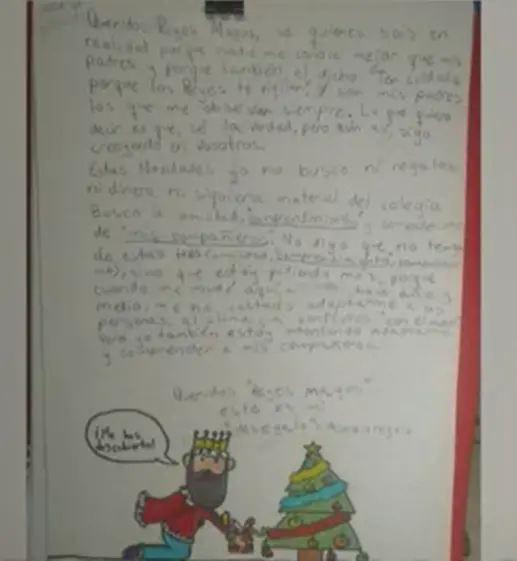 Queridos Reyes Magos, sé quienes sois en
realidad porque nadie me conoce mejor que mis
padres y porque también el dicho "Ten cuidado
porque los Reyes te vigilan" y son mis padres
los que me observan siempre. Lo que quiero
decir es que, sé la verdad, pero aún así, sigo
creyendo en vosotros.
Estas Navidades ya no busco ni regalos
ni dinero, ni siquiera material del colegio
Busco la amistad, "comprendimiento" y
de "mis compañeros". No digo que no tenga
de estas tres
sino que estoy pidiendo más, porque
cuando me mudé aquí hace año y
media, me ha costado adaptarme a las
personas, al clima,
pero yo también estoy intentando adaptarme
y comprender a mis compañeros.
Queridos "Reyes Magos"
este es mi
¡Me has
descubierto!